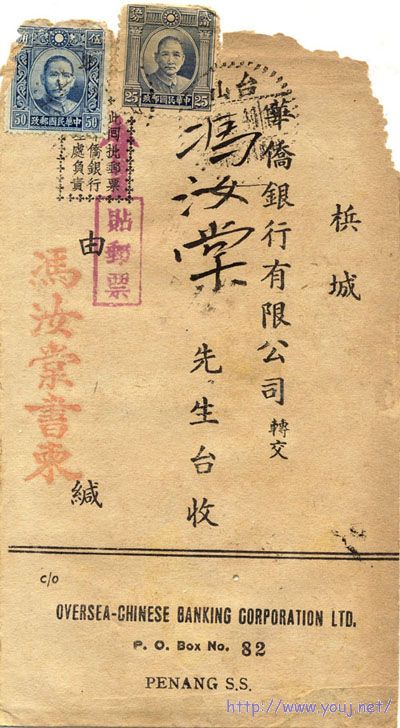 檳城
華僑銀行有限公司
轉交
馮汝棠
先生台收
台山
由
緘
馮汝棠書柬
貼郵票
止同批郵票
僑銀行
處負責
中華民國郵政
50
50
中華民國郵政
25
25
c/o
OVERSEA-CHINESE BANKING CORPORATION LTD.
P. O. Box No. 82
PENANG S.S.
http://www.youj.net/